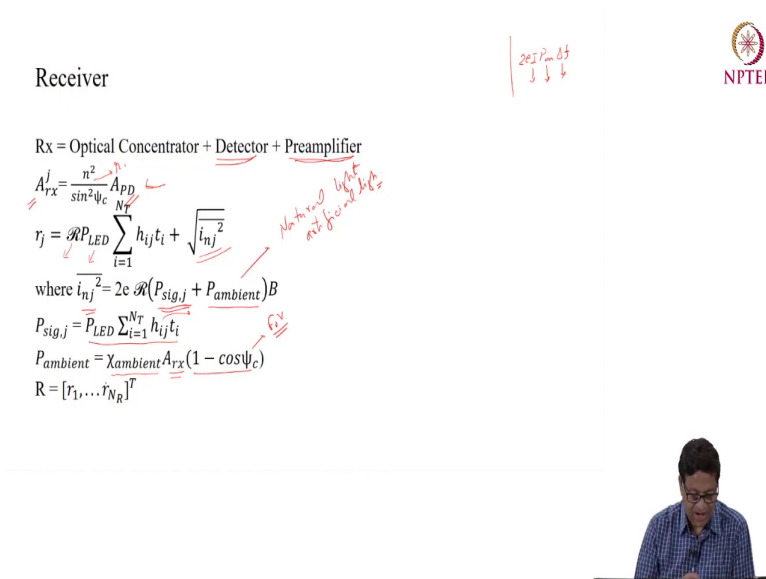 2eI Pm Δf
NPTEL
Receiver
Rx = Optical Concentrator + Detector + Preamplifier
n.
A_{rx}^{j} = \frac{n^2}{sin^2ψ_c} A_{PD}
Natural light
artificial light
r_j = ℛP_{LED} \sum_{i=1}^{N_T} h_{ij}t_i + \sqrt{\overline{i_{nj}^2}}
where \overline{i_{nj}^2} = 2e ℛ(P_{sig,j} + P_{ambient})B
P_{sig,j} = P_{LED} ∑_{i=1}^{N_T} h_{ij}t_i
FoV
P_{ambient} = χ_{ambient}A_{rx}(1 − cosψ_c)
R = [r_1,…r_{N_R}]^T